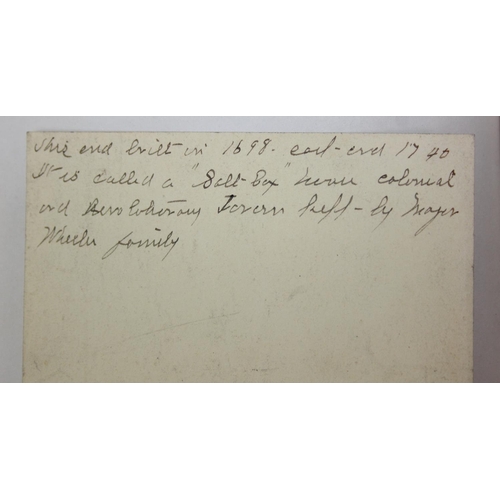 This end built in 1698. east end 1740
It is called a "Salt-Box" house colonial
and Revolutionary Tavern kept - by
Wheeler family